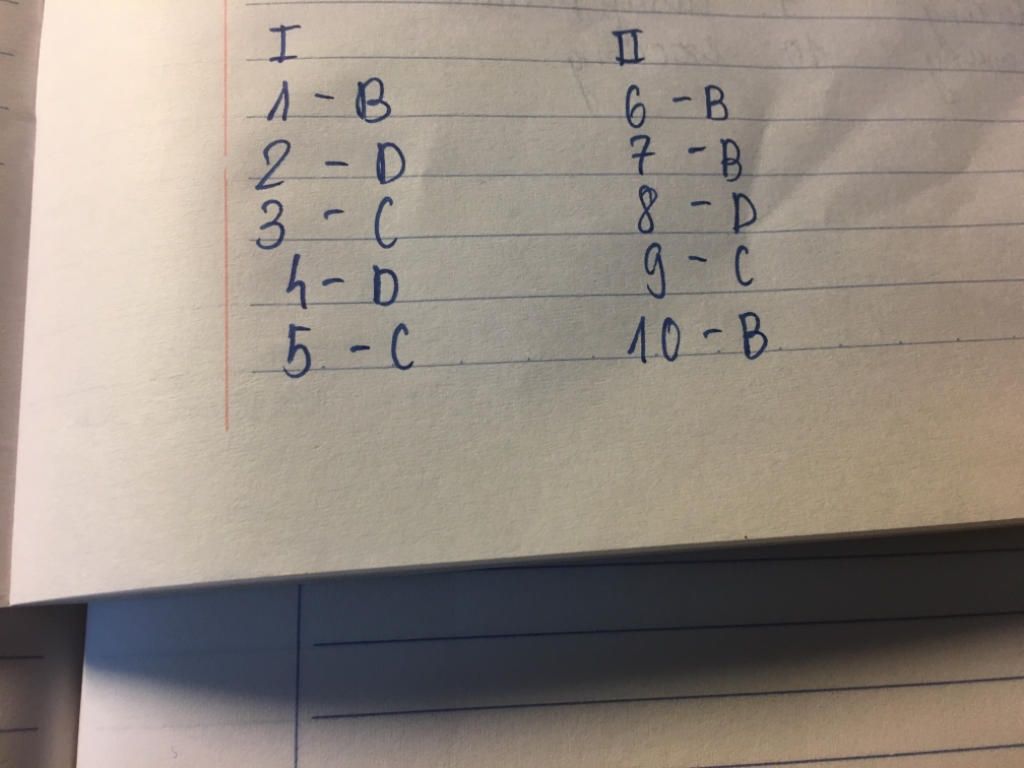 I
1 - B
2 - D
3 - C
4 - D
5 - C
II
6 - B
7 - B
8 - D
9 - C
10 - B